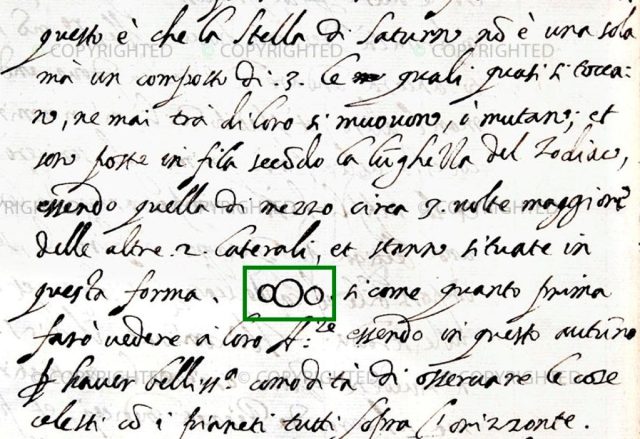 questo è che la stella di Saturno nō è una sola
mà un composto di .3. le quali quasi si tocca=
no, ne mai trà di loro si muovono, ò mutano; et
son poste in fila secōdo la lūghezza del zodiaco,
essendo quella di mezzo circa 3. volte maggiore
delle altre .2. laterali, et stanno situate in
questa forma . oOo . si come quanto prima
farò vedere à loro A.ze essendo in questo autūno
ꝑ haver belliss.a comodità di osservare le cose
celesti cō i pianeti tutti sopra l'orizzonte.
COPYRIGHTED